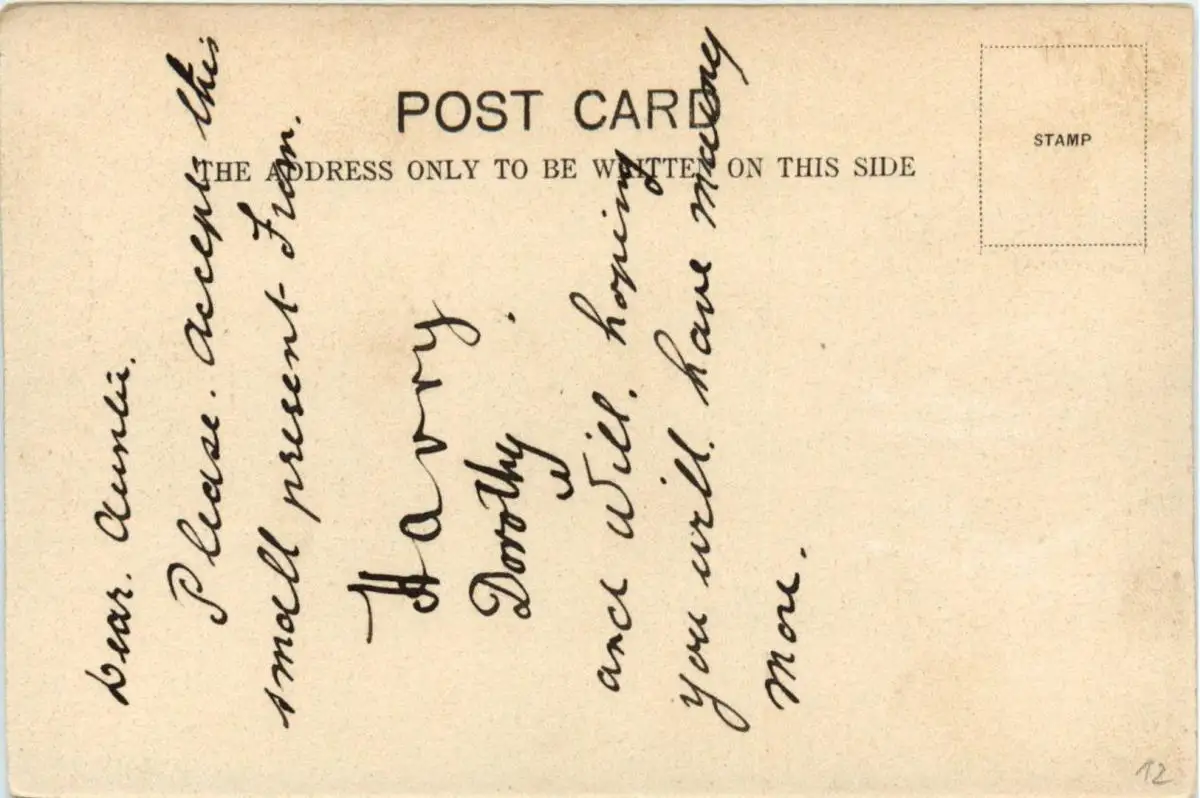 POST CARD
THE ADDRESS ONLY TO BE WRITTEN ON THIS SIDE
STAMP
Dear. Auntie.
Please. accept this
small present From.
Harry
Dorothy.
and Will. hoping
you will. have many
more.
12